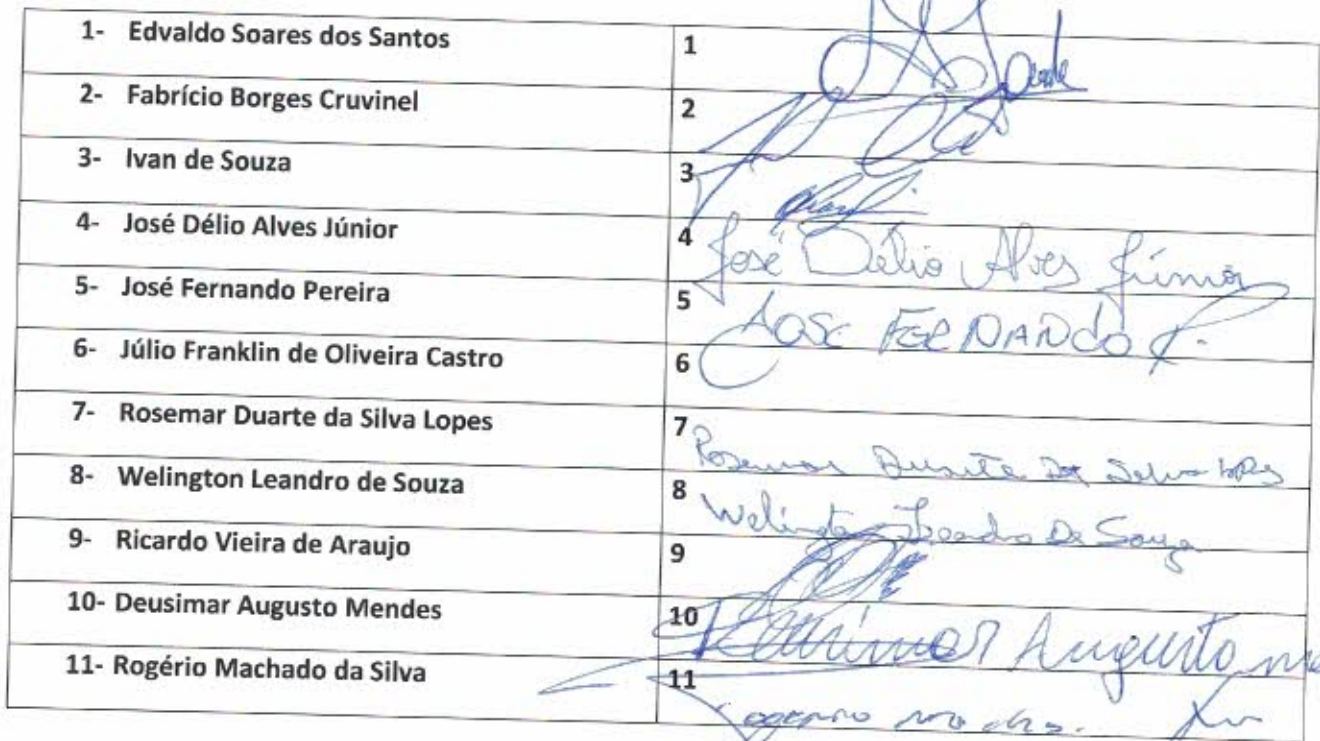 1- Edvaldo Soares dos Santos 1
2- Fabrício Borges Cruvinel 2
3- Ivan de Souza 3
4- José Délio Alves Júnior 4 José Délio Alves Júnior
5- José Fernando Pereira 5 JOSE FERNANDO P.
6- Júlio Franklin de Oliveira Castro 6
7- Rosemar Duarte da Silva Lopes 7 Rosemar Duarte Da Silva Lopes
8- Welington Leandro de Souza 8 Welington Leandro De Souza
9- Ricardo Vieira de Araujo 9
10- Deusimar Augusto Mendes 10 Augusto
11- Rogério Machado da Silva 11